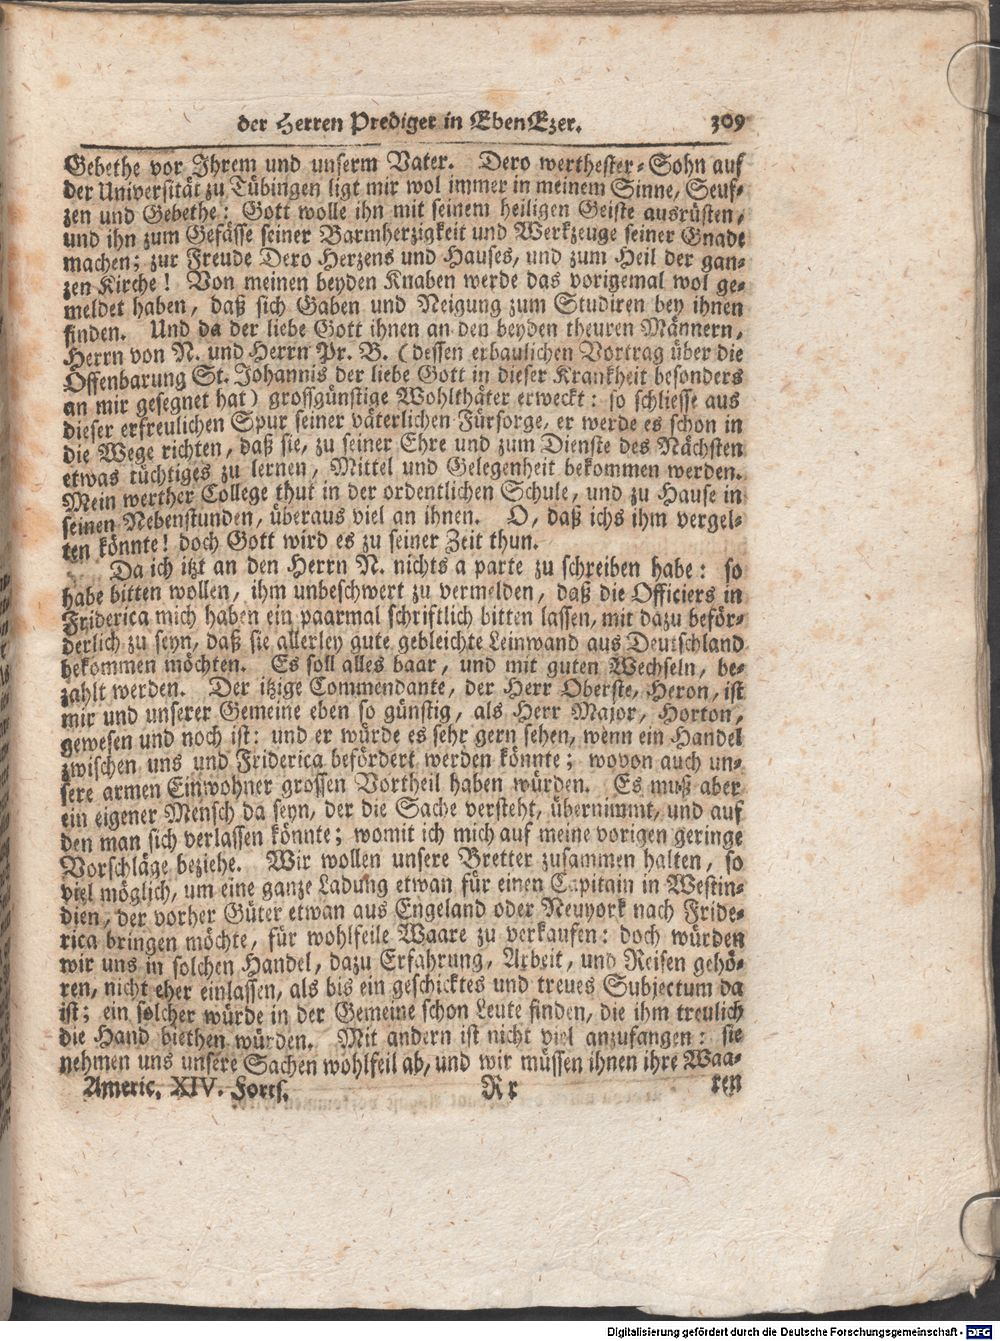 der Herren Prediger in EbenEzer. 309
Gebethe vor Ihrem und unserm Vater. Dero werthester-Sohn auf
der Universität zu Tübingen ligt mir wol immer in meinem Sinne, Seuf-
zen und Gebethe: Gott wolle ihn mit seinem heiligen Geiste ausrüsten,
und ihn zum Gefässe seiner Barmherzigkeit und Werkzeuge seiner Gnade
machen; zur Freude Dero Herzens und Hauses, und zum Heil der gan-
zen Kirche! Von meinen beyden Knaben werde das vorigemal wol ge-
meldet haben, daß sich Gaben und Neigung zum Studiren bey ihnen
finden. Und da der liebe Gott ihnen an den beyden theuren Männern,
Herrn von N. und Herrn Pr. B. (dessen erbaulichen Vortrag über die
Offenbarung St. Johannis der liebe Gott in dieser Krankheit besonders
an mir gesegnet hat) grossgünstige Wohlthäter erweckt: so schliesse aus
dieser erfreulichen Spur seiner väterlichen Fürsorge, er werde es schon in
die Wege richten, daß sie, zu seiner Ehre und zum Dienste des Nächsten
etwas tüchtiges zu lernen, Mittel und Gelegenheit bekommen werden.
Mein werther College thut in der ordentlichen Schule, und zu Hause in
seinen Nebenstunden, überaus viel an ihnen. O, daß ichs ihm vergel-
ten könnte! doch Gott wird es zu seiner Zeit thun.
Da ich itzt an den Herrn N. nichts a parte zu schreiben habe: so
habe bitten wollen, ihm unbeschwert zu vermelden, daß die Officiers in
Friderica mich haben ein paarmal schriftlich bitten lassen, mit dazu beför-
derlich zu seyn, daß sie allerley gute gebleichte Leinwand aus Deutschland
bekommen möchten. Es soll alles baar, und mit guten Wechseln, be-
zahlt werden. Der itzige Commendante, der Herr Oberste, Heron, ist
mir und unserer Gemeine eben so günstig, als Herr Major, Horton,
gewesen und noch ist: und er würde es sehr gern sehen, wenn ein Handel
zwischen uns und Friderica befördert werden könnte; wovon auch un-
sere armen Einwohner grossen Vortheil haben würden. Es muß aber
ein eigener Mensch da seyn, der die Sache versteht, übernimmt, und auf
den man sich verlassen könnte; womit ich mich auf meine vorigen geringe
Vorschläge beziehe. Wir wollen unsere Bretter zusammen halten, so
viel möglich, um eine ganze Ladung etwan für einen Capitain in Westin-
dien, der vorher Güter etwan aus Engeland oder Neuyork nach Fride-
rica bringen möchte, für wohlfeile Waare zu verkaufen: doch würden
wir uns in solchen Handel, dazu Erfahrung, Arbeit, und Reisen gehö-
ren, nicht eher einlassen, als bis ein geschicktes und treues Subjectum da
ist; ein solcher würde in der Gemeine schon Leute finden, die ihm treulich
die Hand biethen würden. Mit andern ist nicht viel anzufangen: sie
nehmen uns unsere Sachen wohlfeil ab, und wir müssen ihnen ihre Waa-
Americ. XIV. Forts. Rr ren
Digitalisierung gefördert durch die Deutsche Forschungsgemeinschaft - DFG